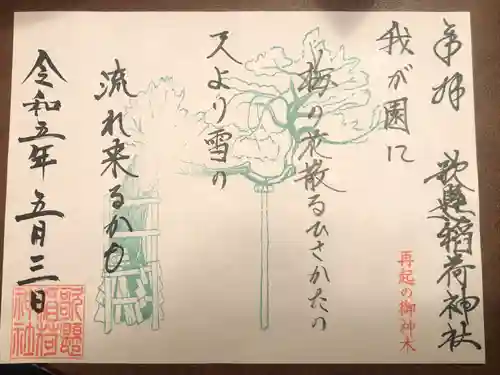 奉拝
歌懸稲荷神社
再起の御神木
我が園に
梅の花散るひさかたの
天より雪の
流れ来るかも
令和五年
五月三日
歌懸
稲荷
神社